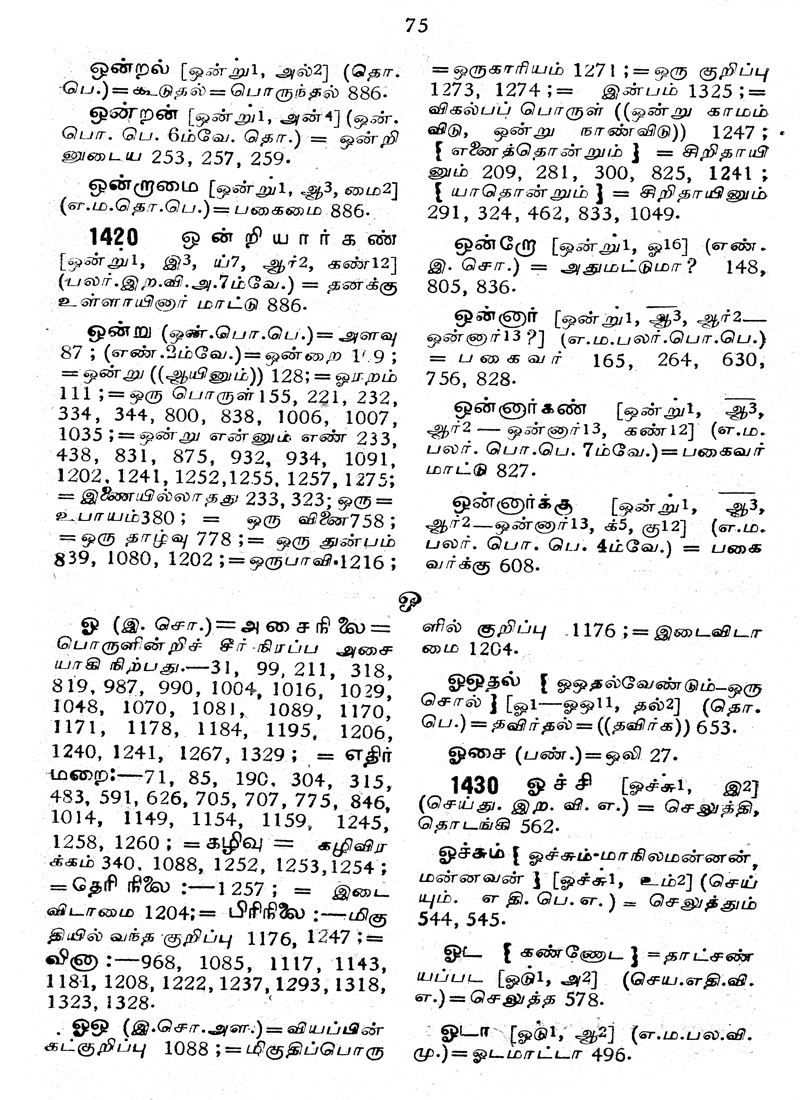 75
ஒன்றல் [ஒன்று1, அல்2] (தொ.
பெ.)=கூடுதல்=பொருந்தல் 886.
ஒன்றன் [ஒன்று1, அன்4] (ஒன்.
பொ. பெ. 6ம்வே. தொ.) = ஒன்றி
னுடைய 253, 257, 259.
ஒன்றாமை [ஒன்று1, ஆ3, மை2]
(எ.ம.தொ.பெ.)=பகைமை 886.
1420 ஒன்றியார்கண்
[ஒன்று1, இ3, ய்7, ஆர்2, கண்12]
(பலர்.இற.வி.அ.7ம்வே.) = தனக்கு
உள்ளாயினார் மாட்டு 886.
ஒன்று (ஒன்.பொ.பெ.)=அளவு
87 ; (எண்.2ம்வே.)=ஒன்றை 1 9 ;
=ஒன்று ((ஆயினும்)) 128;=ஓரறம்
111 ;=ஒரு பொருள்155, 221, 232,
334, 344, 800, 838, 1006, 1007,
1035 ;=ஒன்று என்னும் எண் 233,
438, 831, 875, 932, 934, 1091,
1202, 1241, 1252,1255, 1257, 1275;
=இணையில்லாதது 233, 323; ஒரு=
உபாயம்380 ; = ஒரு வினை758 ;
=ஒரு தாழ்வு 778 ;= ஒரு துன்பம்
839, 1080, 1202 ;=ஒருபாவி.1216 ;
=ஒருகாரியம் 1271 ;=ஒரு குறிப்பு
1273, 1274 ;= இன்பம் 1325 ;=
விகல்பப் பொருள் ((ஒன்று காமம்
விடு, ஒன்று நாண்விடு)) 1247 ;
{ எனைத்தொன்றும் } = சிறிதாயி
னும் 209, 281, 300, 825, 1241 ;
{ யாதொன்றும் } = சிறிதாயினும்
291, 324, 462, 833, 1049.
ஒன்றோ [ஒன்று1, ஓ16] (எண்.
இ. சொ.) = அதுமட்டுமா? 148,
805, 836.
ஒன்னார் [ஒன்று1, ஆ3, ஆர்2—
ஒன்னார்13?] (எ.ம.பலர்.பொ.பெ.)
= பகைவர் 165, 264, 630,
756, 828.
ஒன்னார்கண் [ஒன்று1, ஆ3,
ஆர்2 — ஒன்னார்13, கண்12] (எ.ம.
பலர். பொ.பெ. 7ம்வே.)=பகைவர்
மாட்டு 827.
ஒன்னார்க்கு [ஒன்று1, ஆ3,
ஆர்2—ஒன்னார்13, க்5, கு12] (எ.ம.
பலர். பொ. பெ. 4ம்வே.) = பகை
வர்க்கு 608.
ஓ
ஓ (இ. சொ.)=அசைநிலை=
பொருளின்றிச் சீர் நிரப்ப அசை
யாகி நிற்பது.—31, 99, 211, 318,
819, 987, 990, 1004, 1016, 1029,
1048, 1070, 1081, 1089, 1170,
1171, 1178, 1184, 1195, 1206,
1240, 1241, 1267, 1329 ; = எதிர்
மறை:—71, 85, 190, 304, 315,
483, 591, 626, 705, 707, 775, 846,
1014, 1149, 1154, 1159, 1245,
1258, 1260 ; =கழிவு = கழிவிர
க்கம் 340, 1088, 1252, 1253,1254 ;
=தெரி நிலை :—1257 ; = இடை
விடாமை 1204;= பிரிநிலை :—மிகு
தியில் வந்த குறிப்பு 1176, 1247 ;=
வினா :—968, 1085, 1117, 1143,
1181, 1208, 1222, 1237, 1293, 1318,
1323, 1328.
ஓஒ (இ.சொ.அள.)=வியப்பின்
கட்குறிப்பு 1088 ;=மிகுதிப்பொரு
ளில் குறிப்பு 1176 ;=இடைவிடா
மை 1204.
ஓஒதல் { ஓஒதல்வேண்டும்—ஒரு
சொல் } [ஓ1—ஓஒ11, தல்2] (தொ.
பெ.)=தவிர்தல்=((தவிர்க)) 653.
ஓசை (பண்.)=ஒலி 27.
1430 ஓச்சி [ஓச்சு1, இ2]
(செய்து. இற. வி. எ.) = செலுத்தி,
தொடங்கி 562.
ஓச்சும் { ஓச்சும்-மாநிலமன்னன்,
மன்னவன் } [ஓச்சு1, உம்2] (செய்
யும். எதி. பெ. எ.) = செலுத்தும்
544, 545.
ஓட { கண்ணோட } =தாட்சண்
யப்பட [ஓடு1, அ2] (செய.எதி.வி.
எ.)=செலுத்த 578.
ஓடா [ஓடு1, ஆ2] (எ.ம.பல.வி.
மு.)=ஓடமாட்டா 496.